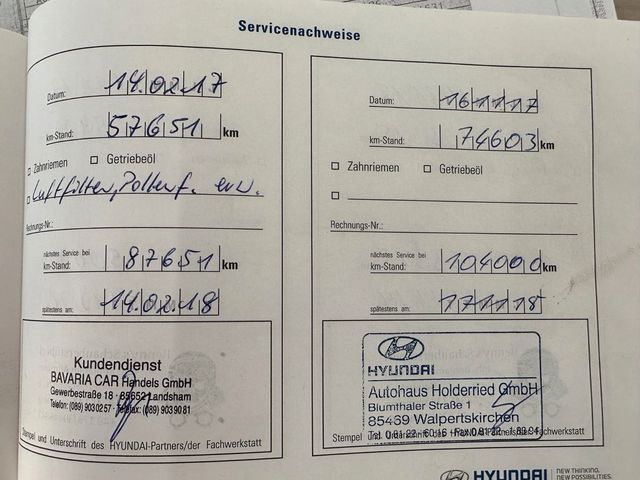 Servicenachweise
Datum: 14.02.17
km-Stand: 57651 km
Zahnriemen Getriebeöl
Luftfilter, Pollenf. erw.
Rechnungs-Nr.:
nächstes Service bei
km-Stand: 87651 km
spätestens am: 14.02.18
Kundendienst
BAVARIA CAR Handels GmbH
Gewerbestraße 18 · 85652 Landsham
Telefon: (089) 9030257 · Telefax: (089) 9039081
Stempel und Unterschrift des HYUNDAI-Partners/der Fachwerkstatt
Datum: 161117
km-Stand: 74603 km
Zahnriemen Getriebeöl
Rechnungs-Nr.:
nächstes Service bei
km-Stand: 104000 km
spätestens am: 171118
HYUNDAI
Autohaus Holderried GmbH
Blumthaler Straße 1
85469 Walpertskirchen
Tel. 0 81 22
Stempel und Unterschrift des HYUNDAI-Partners/der Fachwerkstatt
HYUNDAI
NEW THINKING.
NEW POSSIBILITIES.